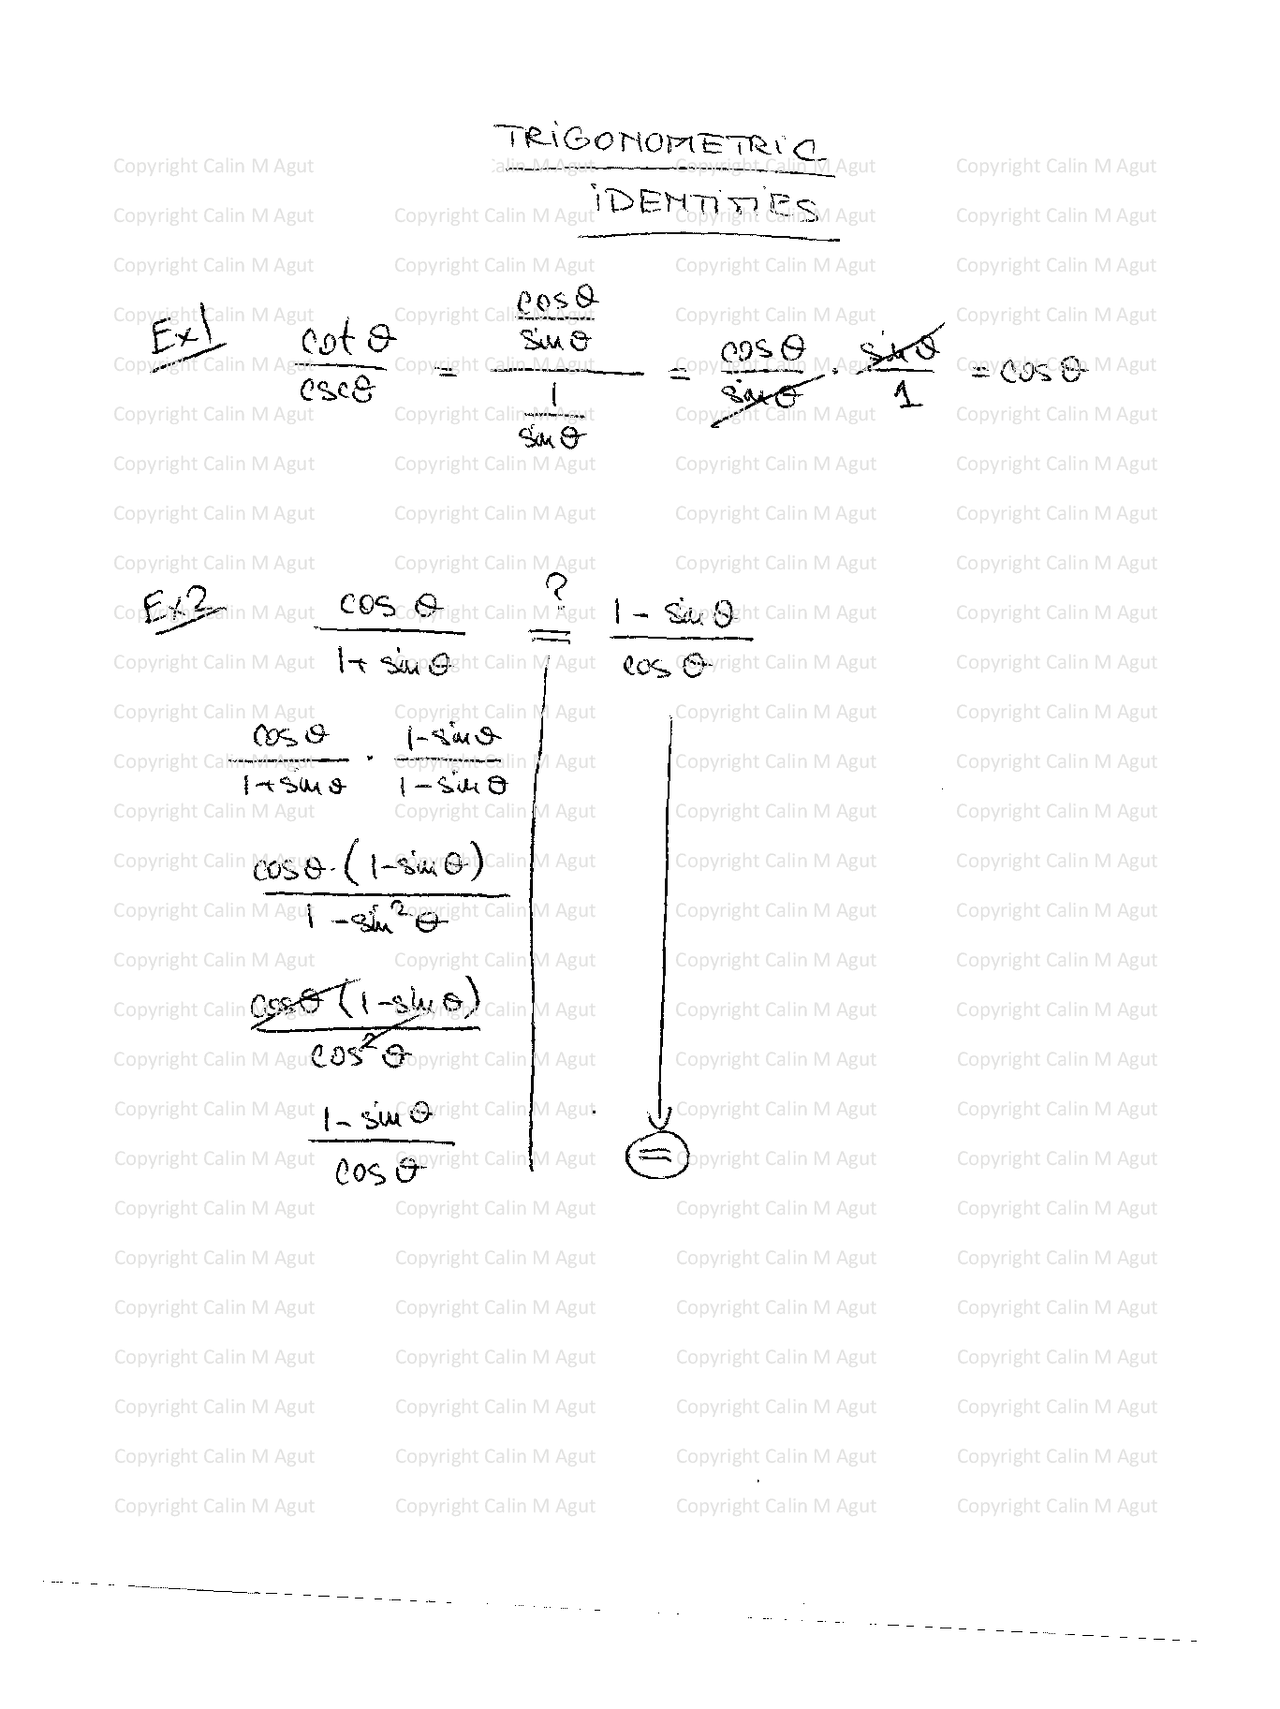 TRIGONOMETRIC
IDENTITIES
Ex1 cot θ / csc θ = (cos θ / sin θ) / (1 / sin θ) = cos θ / sin θ · sin θ / 1 = cos θ
Ex2 cos θ / 1 + sin θ =? 1 - sin θ / cos θ
cos θ / 1 + sin θ · 1 - sin θ / 1 - sin θ
cos θ · (1 - sin θ) / 1 - sin² θ
cos θ (1 - sin θ) / cos² θ
1 - sin θ / cos θ =
Copyright Calin M Agut